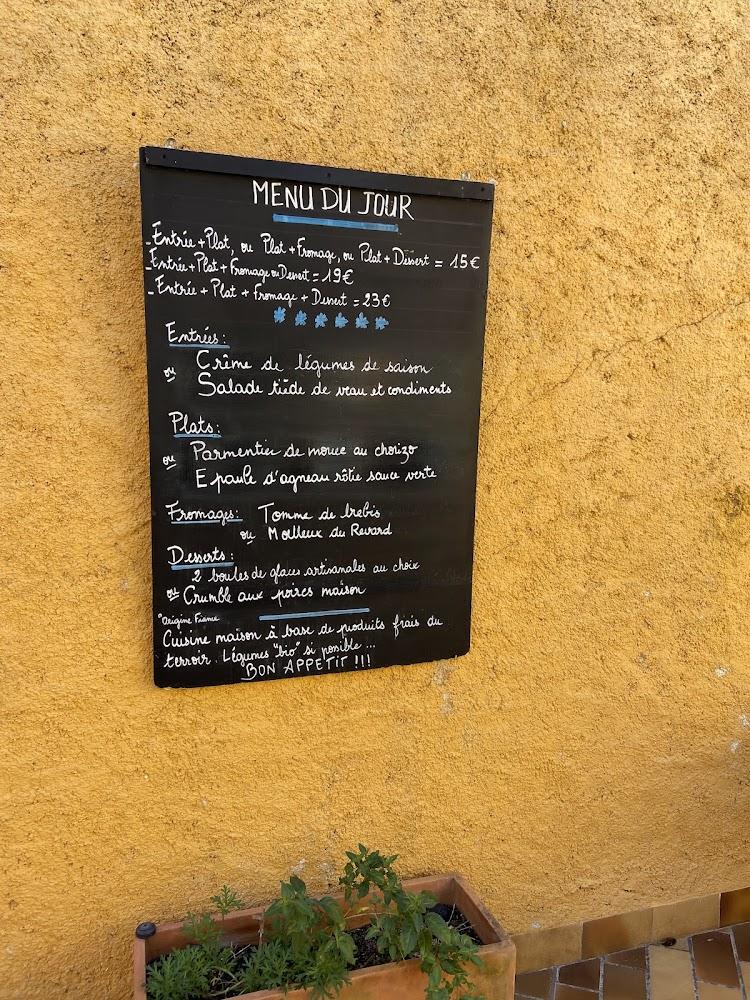 MENU DU JOUR
- Entrée + Plat, ou Plat + Fromage, ou Plat + Dessert = 15€
- Entrée + Plat + Fromage ou Dessert = 19€
- Entrée + Plat + Fromage + Dessert = 23€
Entrées:
Crème de légumes de saison
ou Salade tiède de veau et condiments
Plats:
Parmentier de morue au chorizo
ou Epaule d'agneau rôtie sauce verte
Fromages: Tomme de brebis
ou Moelleux du Revard
Desserts:
2 boules de glaces artisanales au choix
ou Crumble aux poires maison
°origine France
Cuisine maison à base de produits frais du
terroir. Légumes "bio" si possible...
BON APPETIT !!!